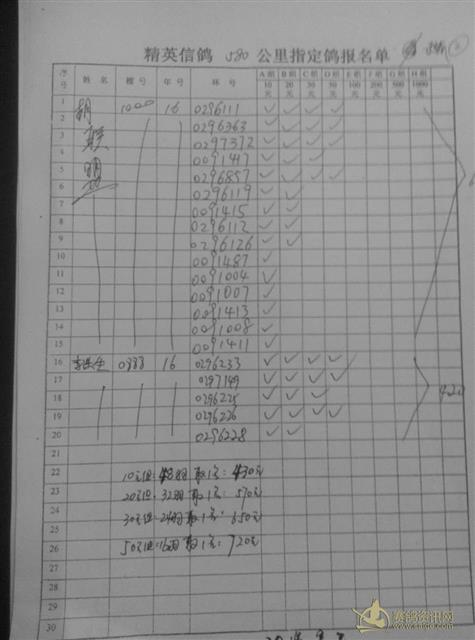 精英信鸽 580 公里指定鸽报名单
序号 姓名 棚号 年号 环号 A组10元 B组20元 C组30元 D组50元 E组100元 F组200元 G组500元 H组1000元
1 胡 1000 16 0296111 ✓ ✓ ✓ ✓
2 联 0296363 ✓ ✓ ✓ ✓
3 盟 0297372 ✓ ✓ ✓ ✓
4 0091447 ✓ ✓ ✓
5 0296857 ✓ ✓ ✓ ✓
6 0296119 ✓ ✓
7 0091415 ✓ ✓
8 0296112 ✓ ✓
9 0296126 ✓ ✓
10 0091487 ✓
11 0091004 ✓
12 0091007 ✓
13 0091413 ✓
14 0091008 ✓
15 0091411 ✓
16 0888 16 0296233 ✓ ✓ ✓ ✓
17 0297149 ✓ ✓ ✓ ✓
18 0296225 ✓ ✓ ✓
19 0296226 ✓ ✓ ✓ ✓
20 0296228 ✓ ✓
22 10元组:48羽 取1名:430元
23 20元组:32羽 取1名:570元
24 30元组:24羽 取1名:650元
25
26 50元组:16羽 取1名:720元
27
28
29
30
赛鸽资讯网
www.saige.com